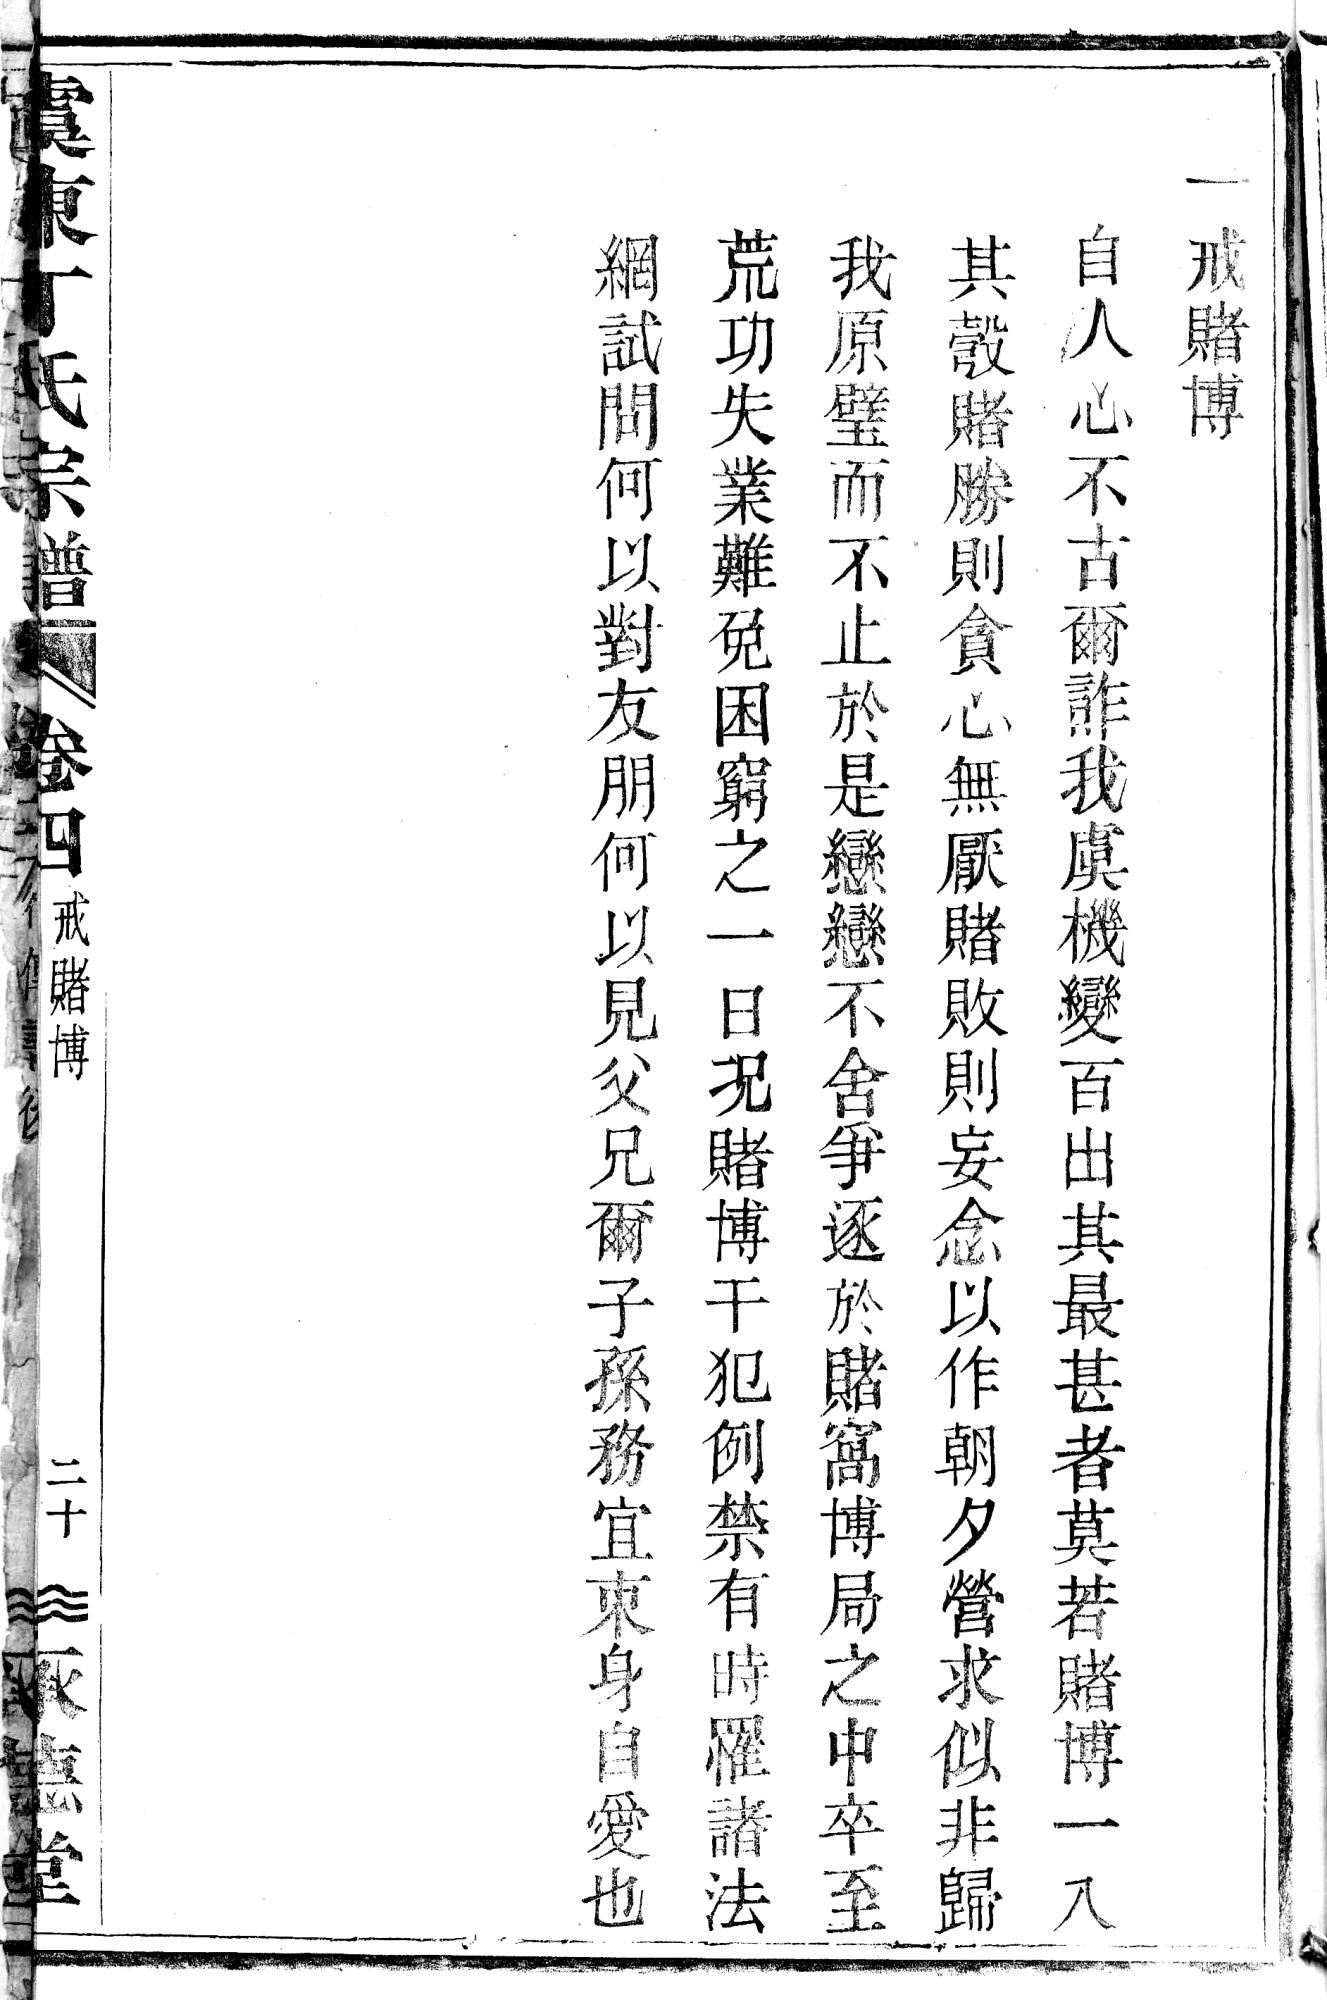 一戒賭博
自人心不古爾詐我虞機變百出其最甚者莫若賭博一入
其彀賭勝則貪心無厭賭敗則妄念以作朝夕營求似非歸
我原璧而不止於是戀戀不舍爭逐於賭窩博局之中卒至
荒功失業難免困窮之一日况賭博干犯例禁有時罹諸法
網試問何以對友朋何以見父兄爾子孫務宜束身自愛也
虞東丁氏宗譜
卷四
戒賭博
二十
承德堂